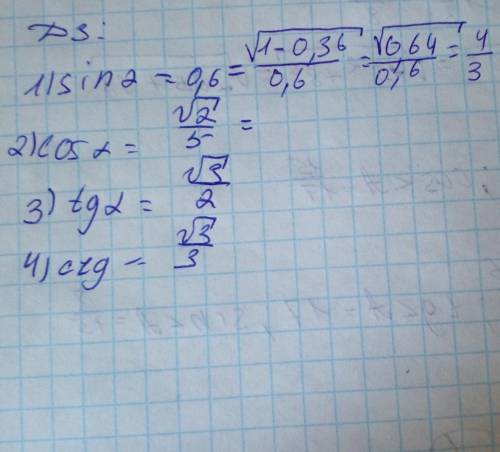 ДЗ:
1) sin α = 0,6 = √(1-0,36)/0,6 = √0,64/0,6 = 4/3
2) cos α = √2/5 =
3) tg α = √3/2
4) ctg = √3/3